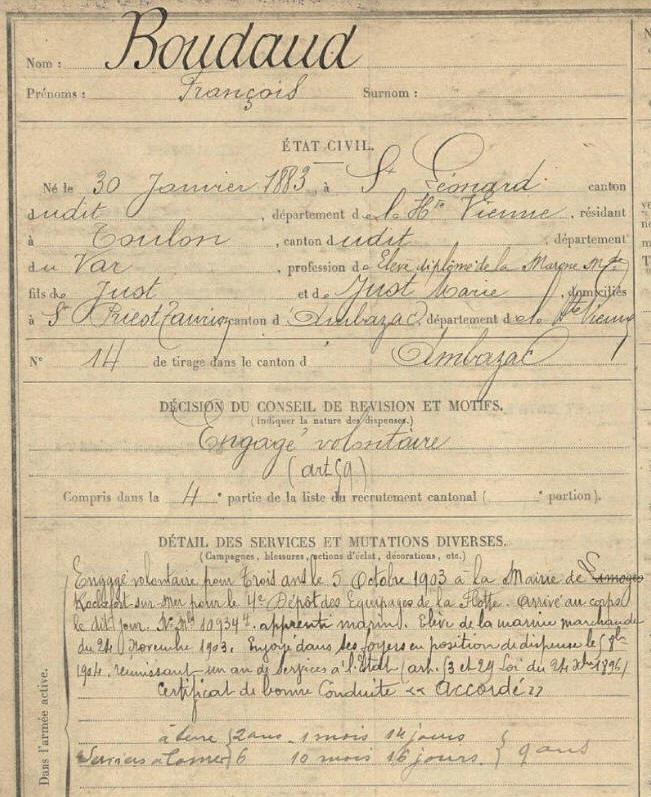 Nom : Boudaud
Prénoms : François Surnom :
ÉTAT CIVIL.
Né le 30 Janvier 1883, à St Léonard canton
dudit , département de la Hte Vienne, résidant
à Toulon , canton dudit , département
du Var , profession d Elève diplômé de la Marine Mde
fils de Just et de Just Marie , domiciliés
à St Priest Taurion canton d'Ambazac, département de la Hte Vienne
N° 14 de tirage dans le canton d Ambazac
DÉCISION DU CONSEIL DE REVISION ET MOTIFS.
(Indiquer la nature des dispenses.)
Engagé volontaire
(art 59)
Compris dans la 4e partie de la liste du recrutement cantonal ( e portion).
DÉTAIL DES SERVICES ET MUTATIONS DIVERSES.
(Campagnes, blessures, actions d'éclat, décorations, etc.)
Engagé volontaire pour Trois ans le 5 Octobre 1903 à la Mairie de Limoges
Rochefort sur Mer pour le 4e Dépôt des Equipages de la Flotte. Arrivé au corps
le dit jour. No Mle 10934 apprenti marin. Elève de la marine marchande
du 24 Novembre 1903. Envoyé dans ses foyers en position de dispense le 8bre
1904. reunissant un an de services à l'Etat (art. 29 Loi du 24 Xbre 1896)
Certificat de bonne Conduite « accordé »
Dans l'armée active.
à terre 2 ans 1 mois 14 jours
Services à la mer 6 10 mois 16 jours 9 ans